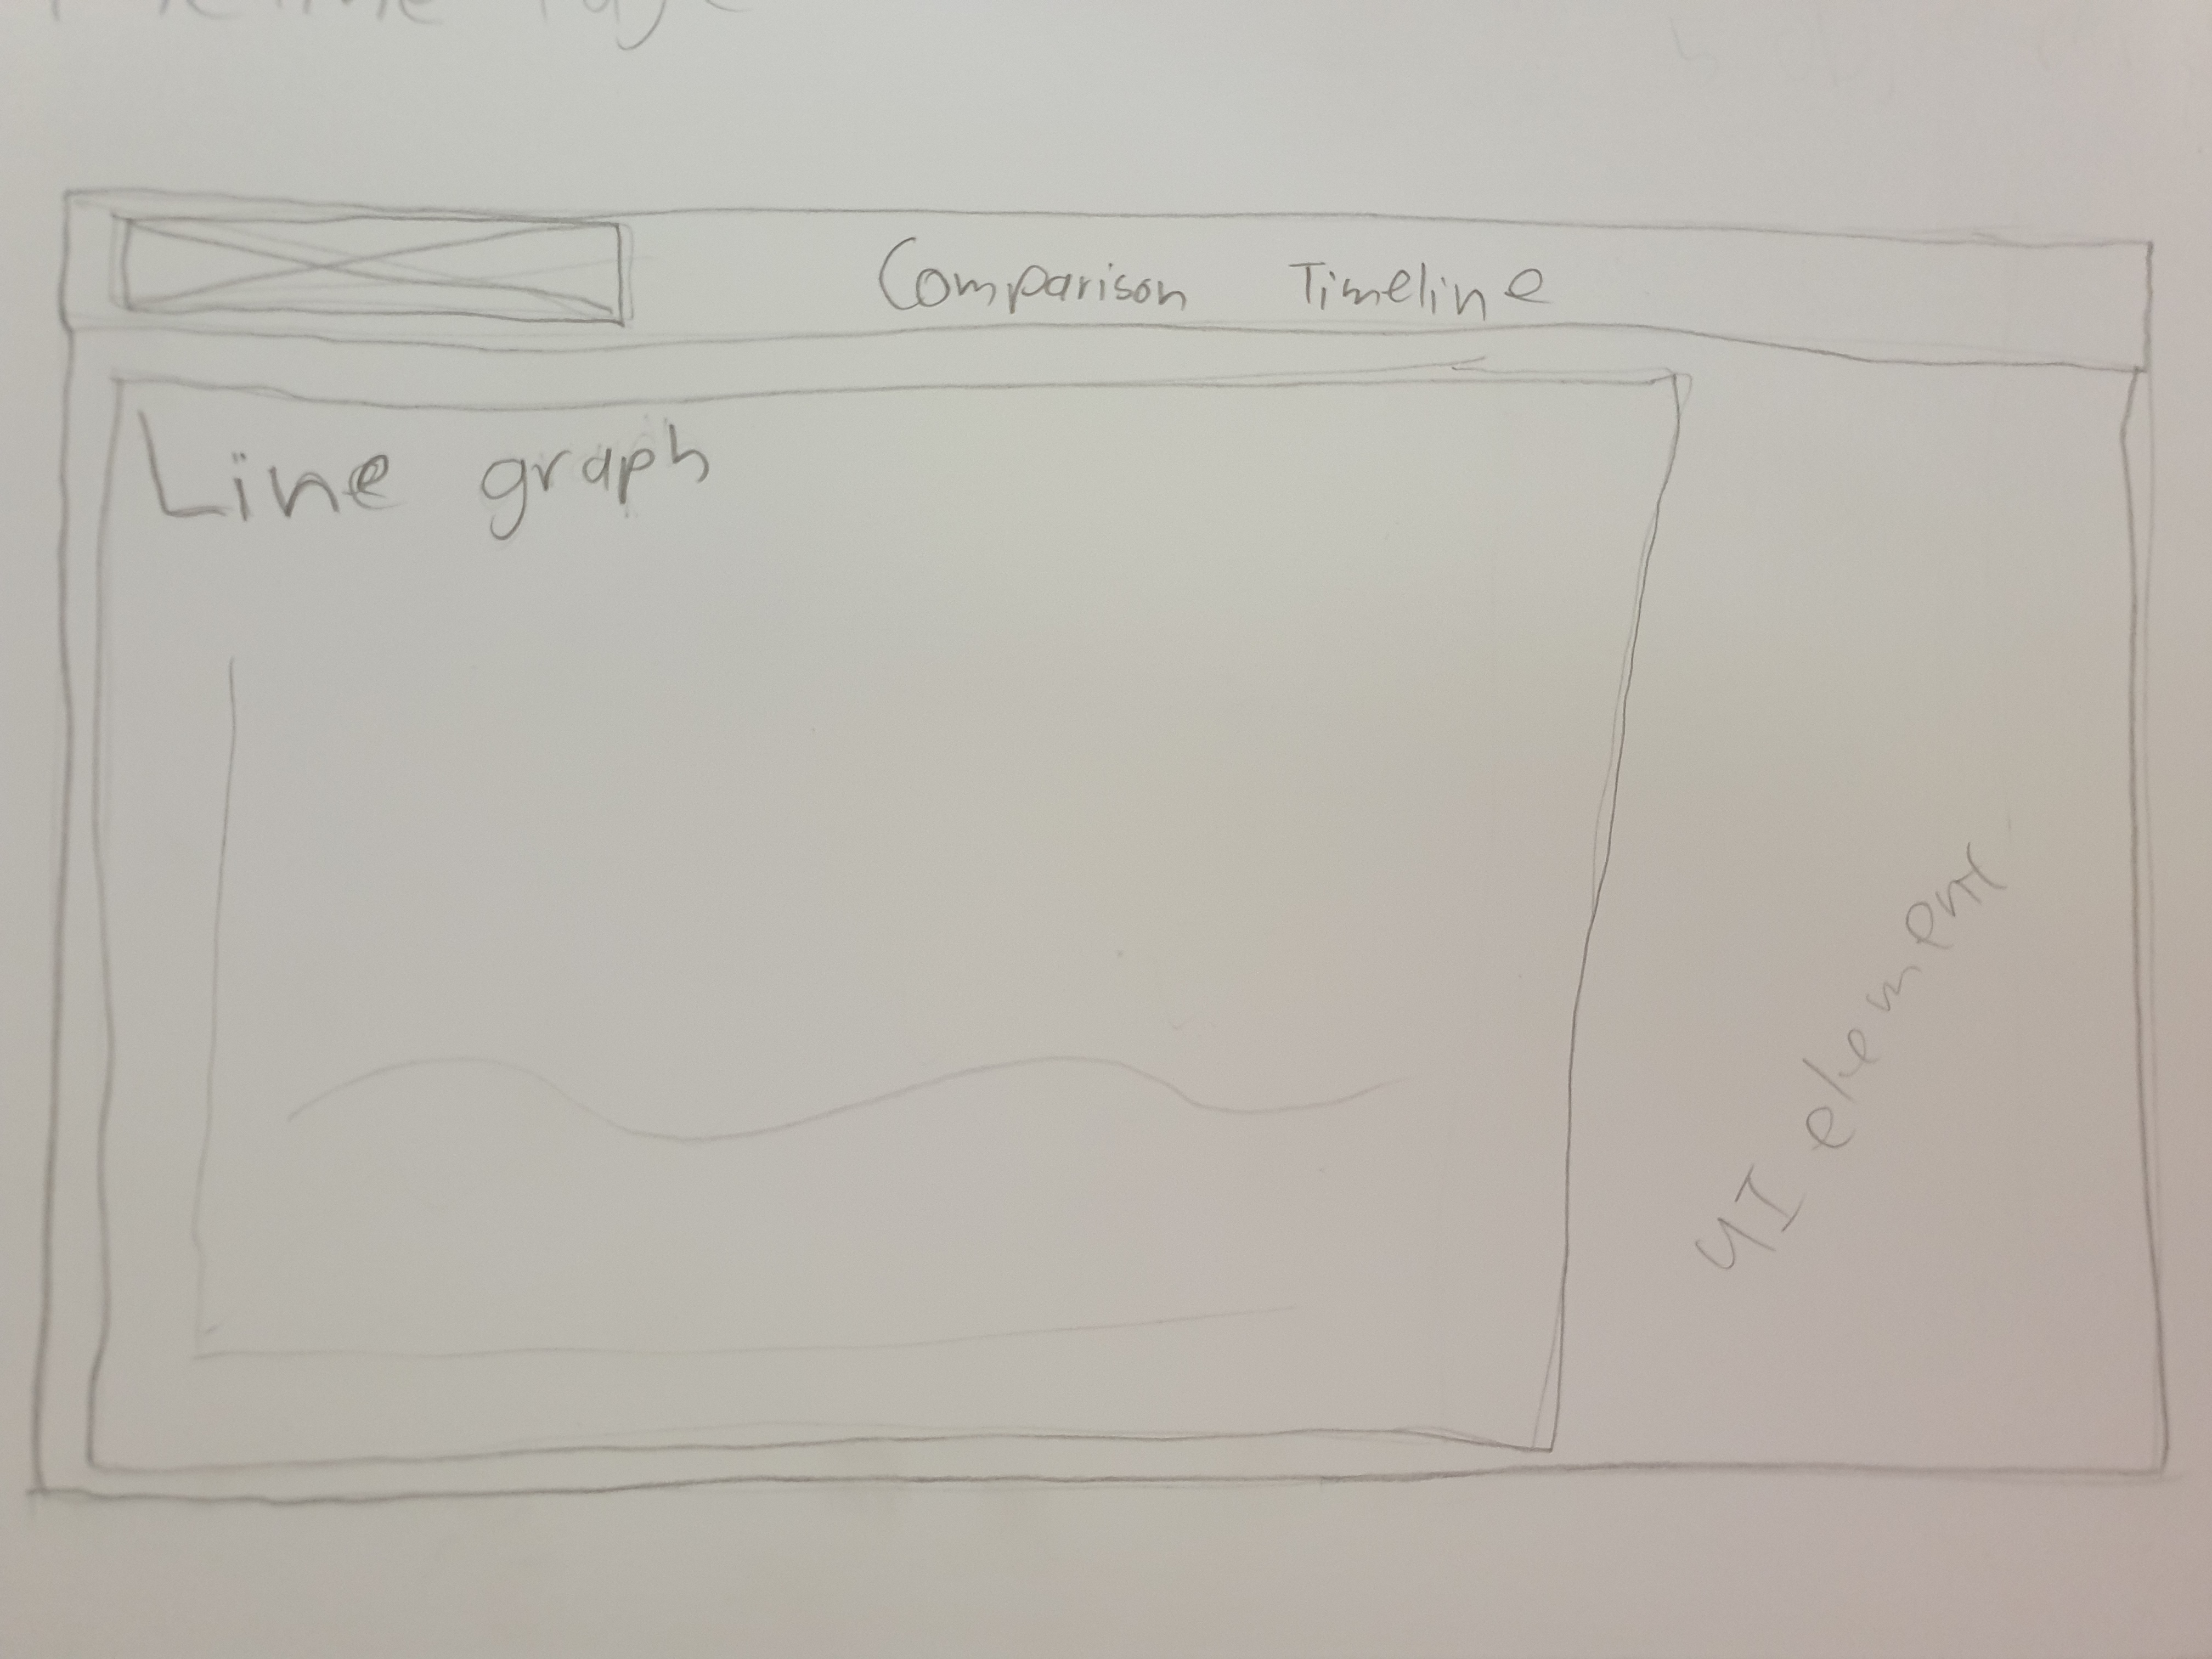 Comparison Timeline
Line graph
UI element